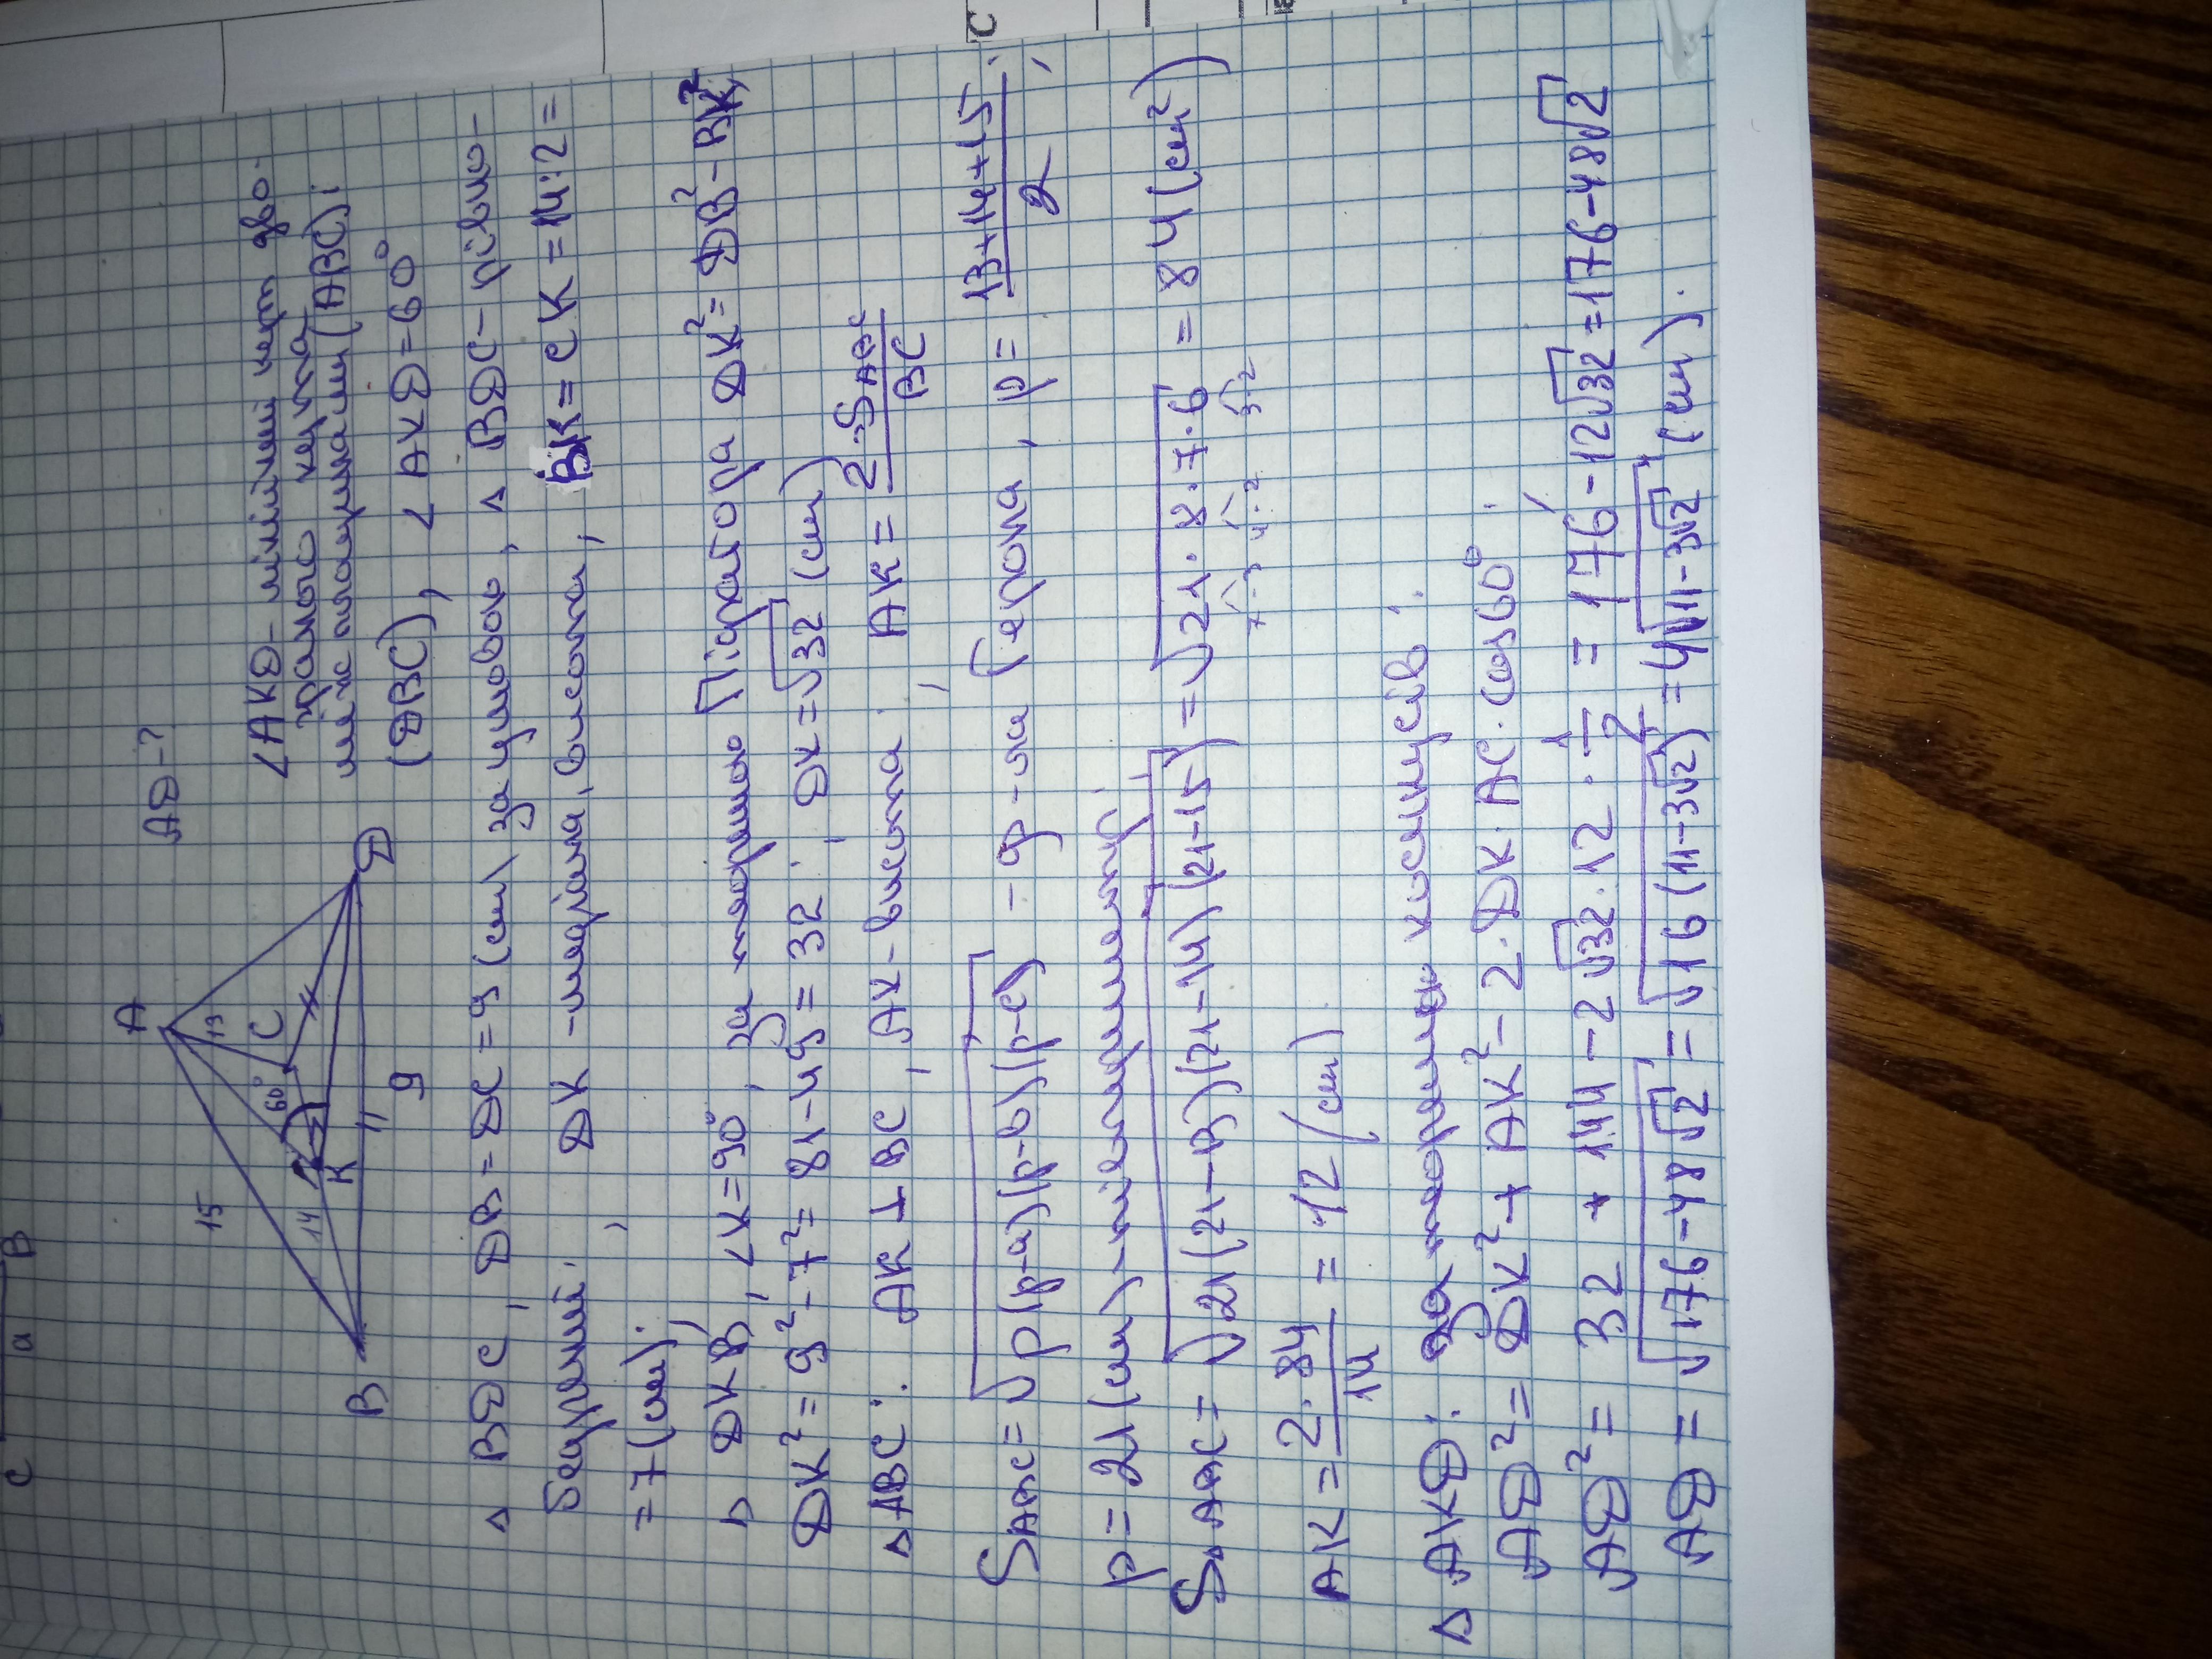 C a B
C
AD-?
A
13
C
15
60°
14
K
B
D
9
∠AKD - лінійний кут дво-
гранного кута
між площинами (ABC) і
(DBC), ∠AKD = 60°
△ BDC, DB = DC = 9 (см) за умовою, △ BDC - рівно-
бедрений, DK - медіана, висота, BK = CK = 14:2 =
= 7 (см);
△ DKB, ∠K = 90°, за теоремою Піфагора DK² = DB² - BK²,
DK² = 9² - 7² = 81 - 49 = 32; DK = √32 (см)
△ABC: AK ⊥ BC, AK - висота, AK = 2·S_ABC / BC
S_ABC = √p(p-a)(p-b)(p-c) - ф-ла Герона, p = 13+14+15 / 2,
p = 21 (см) - півпериметр;
S△ABC = √21(21-13)(21-14)(21-15) = √21·8·7·6 = 84 (см²)
7·3 4·2 3·2
AK = 2·84 / 14 = 12 (см).
△ AKD: за теоремою косинусів:
AD² = DK² + AK² - 2·DK·AC·cos60°;
AD² = 32 + 144 - 2√32·12·1/2 = 176 - 12√32 = 176 - 48√2
AD = √176-48√2 = √16(11-3√2) = 4√11-3√2 (см).